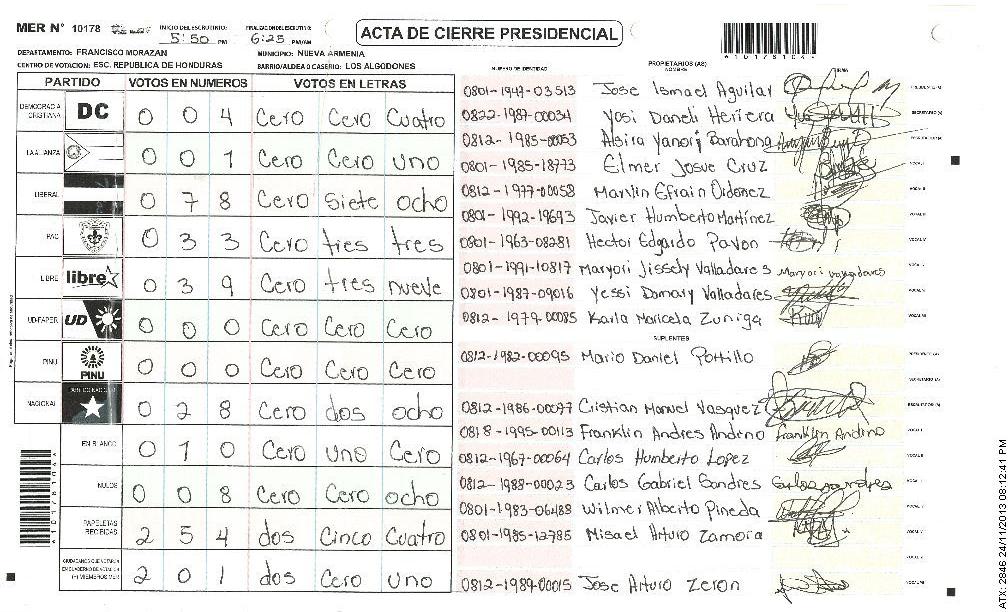 MER N° 10178 INICIO DEL ESCRUTINIO: 5:50 PM FINALIZACION DEL ESCRUTINIO: 6:25 PM/AM
ACTA DE CIERRE PRESIDENCIAL
DEPARTAMENTO: FRANCISCO MORAZAN MUNICIPIO: NUEVA ARMENIA
CENTRO DE VOTACION: ESC. REPUBLICA DE HONDURAS BARRIO/ALDEA O CASERIO: LOS ALGODONES
PARTIDO VOTOS EN NUMEROS VOTOS EN LETRAS
DEMOCRACIA CRISTIANA DC 0 0 4 Cero Cero Cuatro
LA ALIANZA 0 0 1 Cero Cero uno
LIBERAL 0 7 8 Cero Siete ocho
PAC 0 3 3 Cero tres tres
LIBRE libre 0 3 9 Cero tres nueve
UD-FAPER UD 0 0 0 Cero Cero Cero
PINU PINU 0 0 0 Cero Cero Cero
NACIONAL 0 2 8 Cero dos ocho
EN BLANCO 0 1 0 Cero uno Cero
NULOS 0 0 8 Cero Cero ocho
PAPELETAS RECIBIDAS 2 5 4 dos Cinco Cuatro
2 0 1 dos Cero uno
NUMERO DE IDENTIDAD PROPIETARIOS (AS) NOMBRE FIRMA
0801-1947-03513 Jose Ismael Aguilar
0822-1987-00034 Yosi Daneli Herrera
0812-1985-00053 Alsira Yanori Barahona
0801-1985-18773 Elmer Josue Cruz
0812-1977-00058 Marvin Efrain Ordoñez
0801-1992-19693 Javier Humberto Martinez
0801-1963-08281 Hector Edgardo Pavon
0801-1991-10817 Maryori Jissely Valladares Maryori Valladares
0801-1987-09016 Yessi Damary Valladares
0812-1979-00085 Karla Maricela Zuniga
SUPLENTES
0812-1982-00095 Mario Daniel Portillo
0812-1986-00077 Cristian Manuel Vasquez
0818-1995-00113 Franklin Andres Andino Franklin Andino
0812-1967-00064 Carlos Humberto Lopez
0812-1988-00023 Carlos Gabriel Sandres
0801-1983-06488 Wilmer Alberto Pineda
0801-1985-12785 Misael Arturo Zamora
0812-1989-00015 Jose Arturo Zeron
ATX-2846 24/11/2013 08:12:41 PM